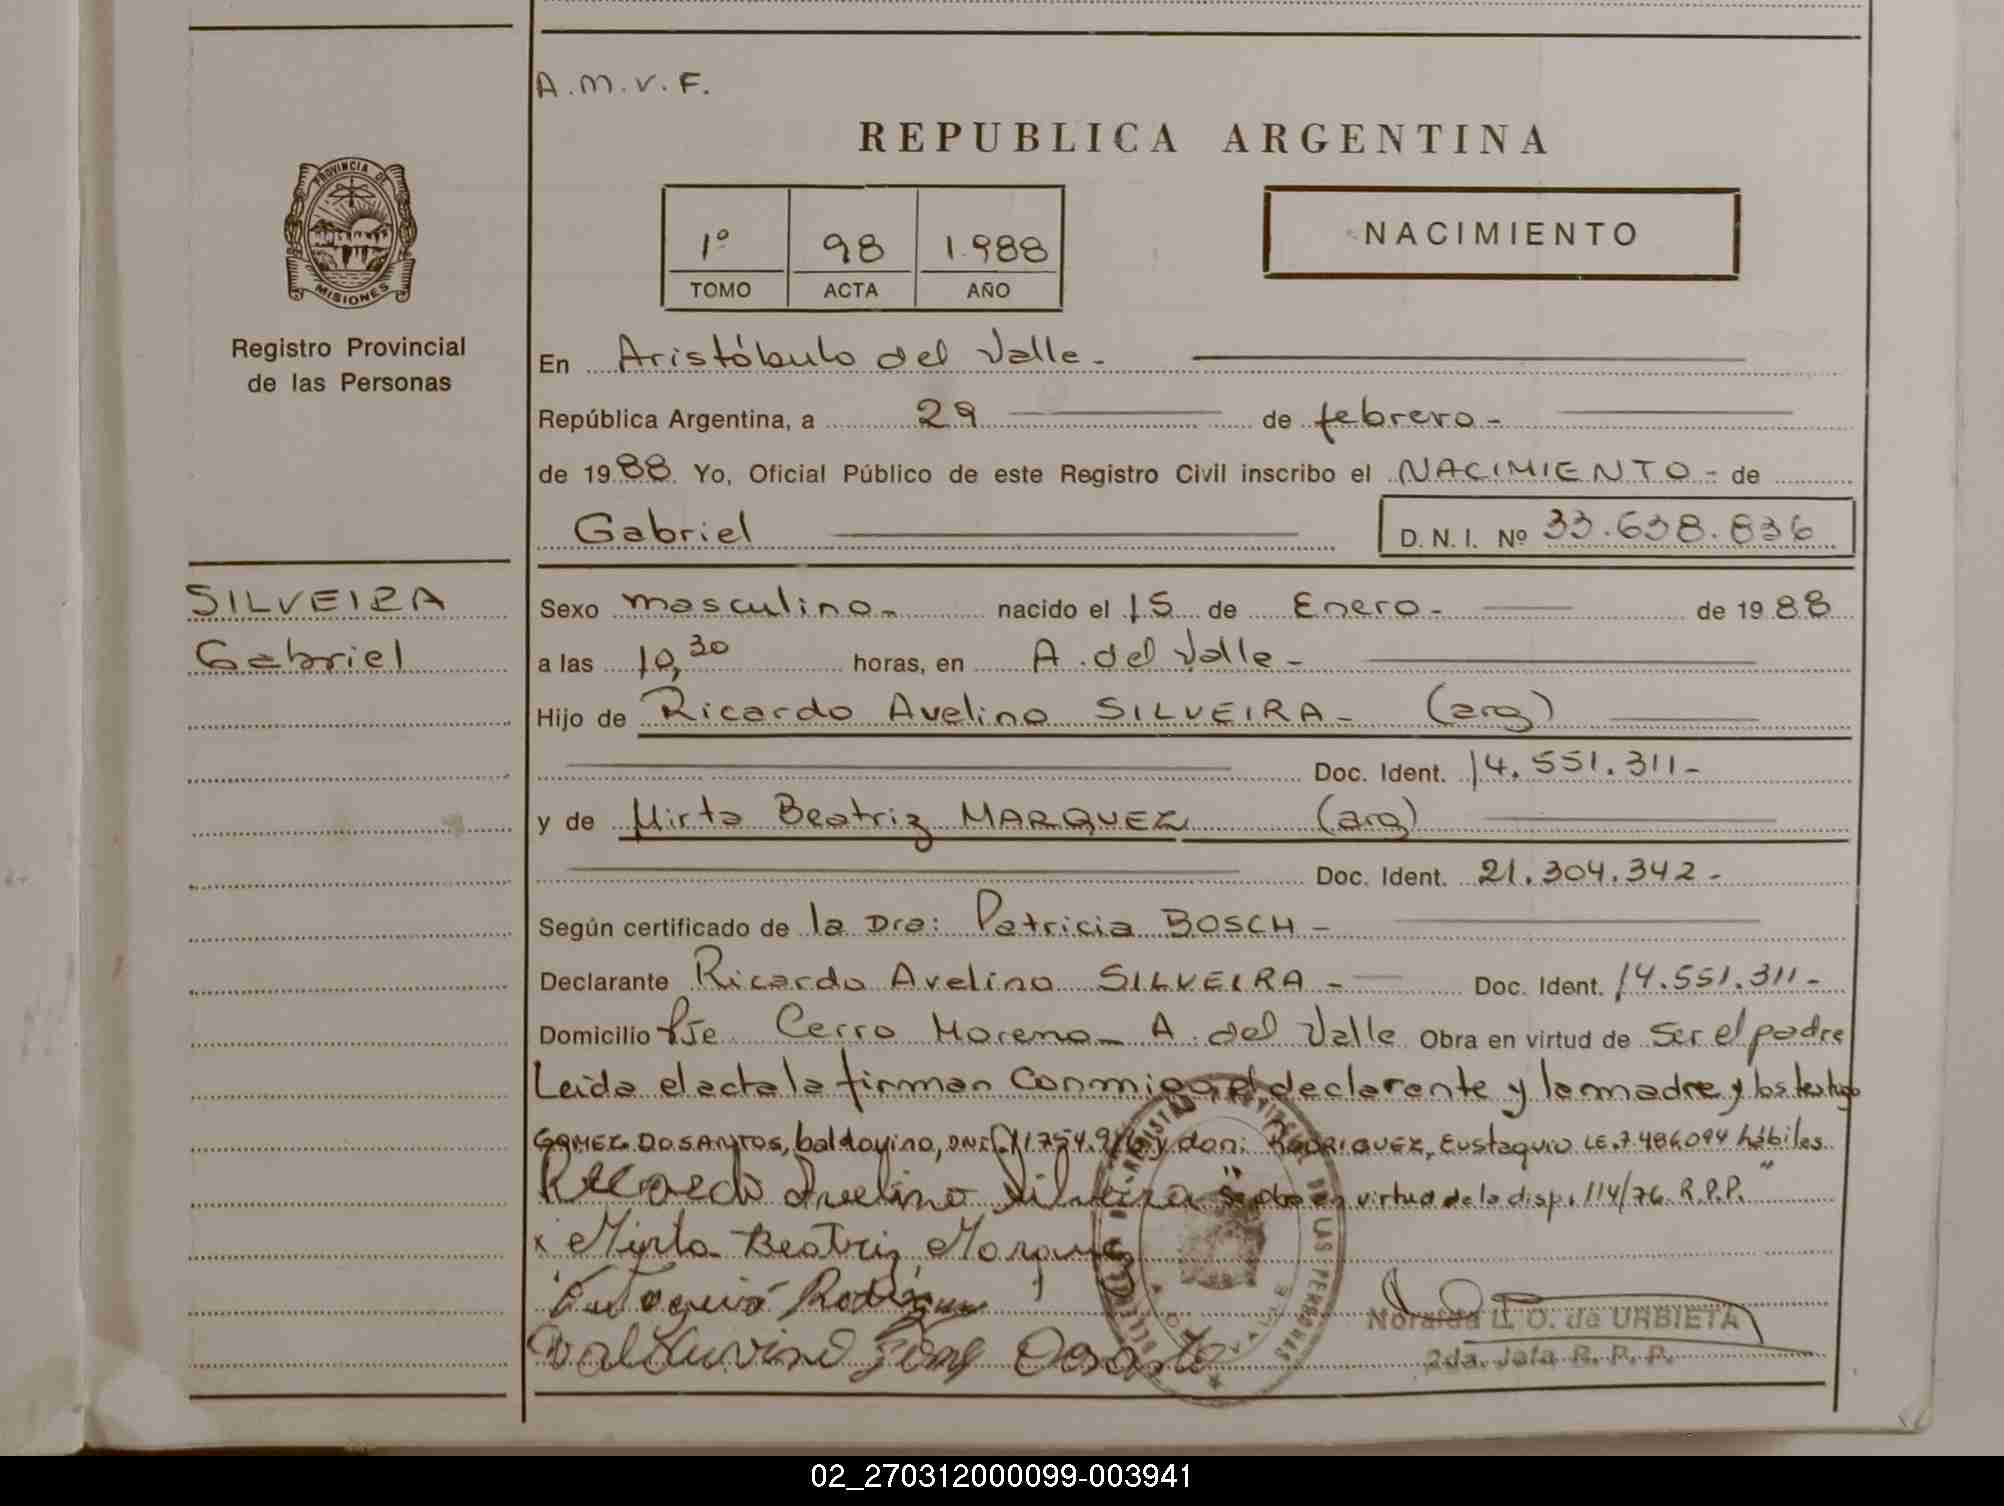 A.M.V.F.
REPUBLICA ARGENTINA
1º 98 1.988
TOMO ACTA AÑO
NACIMIENTO
PROVINCIA DE
MISIONES
Registro Provincial
de las Personas
En Aristóbulo del Valle-
República Argentina, a 29 de febrero-
de 1988. Yo, Oficial Público de este Registro Civil inscribo el NACIMIENTO- de
Gabriel D. N. I. Nº 33.638.836
SILVEIRA
Gabriel
Sexo masculino- nacido el 15 de Enero- de 1988
a las 10,30 horas, en A. del Valle-
Hijo de Ricardo Avelino SILVEIRA- (arg)
Doc. Ident. 14.551.311-
y de Mirta Beatriz MARQUEZ (arg)
Doc. Ident. 21.304.342-
Según certificado de la Dra: Patricia BOSCH-
Declarante Ricardo Avelino SILVEIRA- Doc. Ident. 14.551.311-
Domicilio Pje Cerro Moreno- A. del Valle Obra en virtud de Ser el padre
Leida el acta la firman conmigo, el declarante y la madre y los testigo
GOMEZ DOSANTOS, baldovino, DNI. y don: RODRIGUEZ, Eustaquio LE.7.486.094 hábiles.
Ricardo Avelino Silveira "Se obra en virtud de la disp. 114/76 R.P.P."
x Mirta Beatriz Marquez
Eustaquio Rodriguez
Valduvino Gome Dosanto
Noraida L. O. de URBIETA
2da. Jefa R. P. P.
02_270312000099-003941